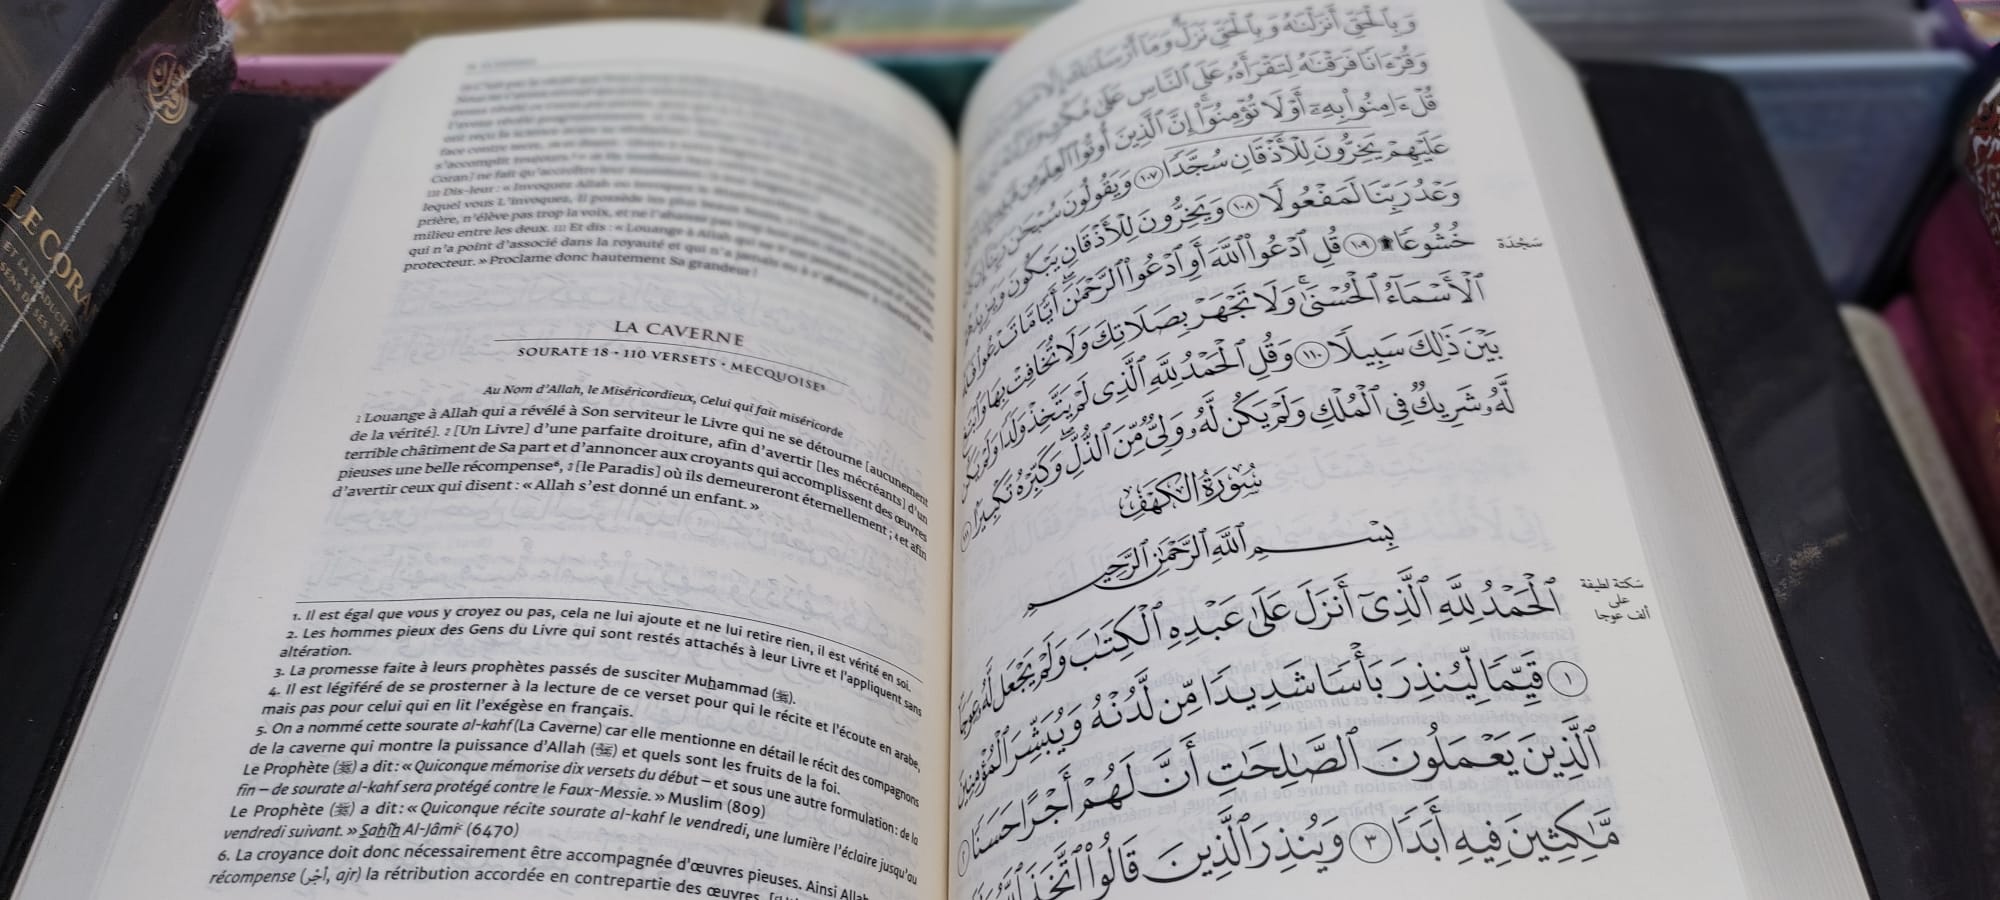 LE CORAN
ET LA TRADUCTION
SENS DE SES VERSETS
Coran] ne fait qu'accroître leur
111 Dis-leur : « Invoquez Allah ou invoquez le
lequel vous L'invoquez, Il possède les plus beaux
prière, n'élève pas trop la voix, et ne l'abaisse pas trop
milieu entre les deux. 111 Et dis : « Louange à Allah qui
qui n'a point d'associé dans la royauté et qui n'a jamais eu à
protecteur. » Proclame donc hautement Sa grandeur !
LA CAVERNE
SOURATE 18 • 110 VERSETS • MECQUOISE⁵
Au Nom d'Allah, le Miséricordieux, Celui qui fait miséricorde
1 Louange à Allah qui a révélé à Son serviteur le Livre qui ne se détourne [aucunement
de la vérité]. 2 [Un Livre] d'une parfaite droiture, afin d'avertir [les mécréants] d'un
terrible châtiment de Sa part et d'annoncer aux croyants qui accomplissent des œuvres
pieuses une belle récompense⁶, 3 [le Paradis] où ils demeureront éternellement ; 4 et afin
d'avertir ceux qui disent : « Allah s'est donné un enfant. »
1. Il est égal que vous y croyez ou pas, cela ne lui ajoute et ne lui retire rien, il est vérité en soi.
2. Les hommes pieux des Gens du Livre qui sont restés attachés à leur Livre et l'appliquent sans
altération.
3. La promesse faite à leurs prophètes passés de susciter Muhammad (ﷺ).
4. Il est légiféré de se prosterner à la lecture de ce verset pour qui le récite et l'écoute en arabe,
mais pas pour celui qui en lit l'exégèse en français.
5. On a nommé cette sourate al-kahf (La Caverne) car elle mentionne en détail le récit des compagnons
de la caverne qui montre la puissance d'Allah (ﷻ) et quels sont les fruits de la foi.
Le Prophète (ﷺ) a dit : « Quiconque mémorise dix versets du début – et sous une autre formulation : de la
fin – de sourate al-kahf sera protégé contre le Faux-Messie. » Muslim (809)
Le Prophète (ﷺ) a dit : « Quiconque récite sourate al-kahf le vendredi, une lumière l'éclaire jusqu'au
vendredi suivant. » Sahîh Al-Jâmiᶜ (6470)
6. La croyance doit donc nécessairement être accompagnée d'œuvres pieuses. Ainsi Allah
récompense (أجر, ajr) la rétribution accordée en contrepartie des œuvres.
وَبِٱلْحَقِّ أَنزَلْنَٰهُ وَبِٱلْحَقِّ نَزَلَ وَمَآ أَرْسَلْنَٰكَ إِلَّا
وَقُرْءَانًا فَرَقْنَٰهُ لِتَقْرَأَهُۥ عَلَى ٱلنَّاسِ عَلَىٰ مُكْثٍ
قُلْ ءَامِنُوا۟ بِهِۦٓ أَوْ لَا تُؤْمِنُوٓا۟ إِنَّ ٱلَّذِينَ أُوتُوا۟ ٱلْعِلْمَ مِن
عَلَيْهِمْ يَخِرُّونَ لِلْأَذْقَانِ سُجَّدًا ١٠٧ وَيَقُولُونَ سُبْحَٰنَ رَبِّنَآ
وَعْدُ رَبِّنَا لَمَفْعُولًا ١٠٨ وَيَخِرُّونَ لِلْأَذْقَانِ يَبْكُونَ وَيَزِيدُهُمْ
خُشُوعًا ۩ ١٠٩ قُلِ ٱدْعُوا۟ ٱللَّهَ أَوِ ٱدْعُوا۟ ٱلرَّحْمَٰنَ أَيًّا مَّا تَدْعُوا۟ فَلَهُ
سَجْدَة
ٱلْأَسْمَآءُ ٱلْحُسْنَىٰ وَلَا تَجْهَرْ بِصَلَاتِكَ وَلَا تُخَافِتْ بِهَا وَٱبْتَغِ
بَيْنَ ذَٰلِكَ سَبِيلًا ١١٠ وَقُلِ ٱلْحَمْدُ لِلَّهِ ٱلَّذِى لَمْ يَتَّخِذْ وَلَدًا وَلَمْ يَكُن
لَّهُۥ شَرِيكٌ فِى ٱلْمُلْكِ وَلَمْ يَكُن لَّهُۥ وَلِىٌّ مِّنَ ٱلذُّلِّ وَكَبِّرْهُ تَكْبِيرًۢا ١١١
سُورَةُ ٱلْكَهْفِ
بِسْمِ ٱللَّهِ ٱلرَّحْمَٰنِ ٱلرَّحِيمِ
ٱلْحَمْدُ لِلَّهِ ٱلَّذِىٓ أَنزَلَ عَلَىٰ عَبْدِهِ ٱلْكِتَٰبَ وَلَمْ يَجْعَل لَّهُۥ عِوَجَا
سكتة لطيفة
على
ألف عوجا
١ قَيِّمًا لِّيُنذِرَ بَأْسًا شَدِيدًا مِّن لَّدُنْهُ وَيُبَشِّرَ ٱلْمُؤْمِنِينَ
ٱلَّذِينَ يَعْمَلُونَ ٱلصَّٰلِحَٰتِ أَنَّ لَهُمْ أَجْرًا حَسَنًا ٢
مَّٰكِثِينَ فِيهِ أَبَدًا ٣ وَيُنذِرَ ٱلَّذِينَ قَالُوا۟ ٱتَّخَذَ ٱللَّهُ وَلَدًا